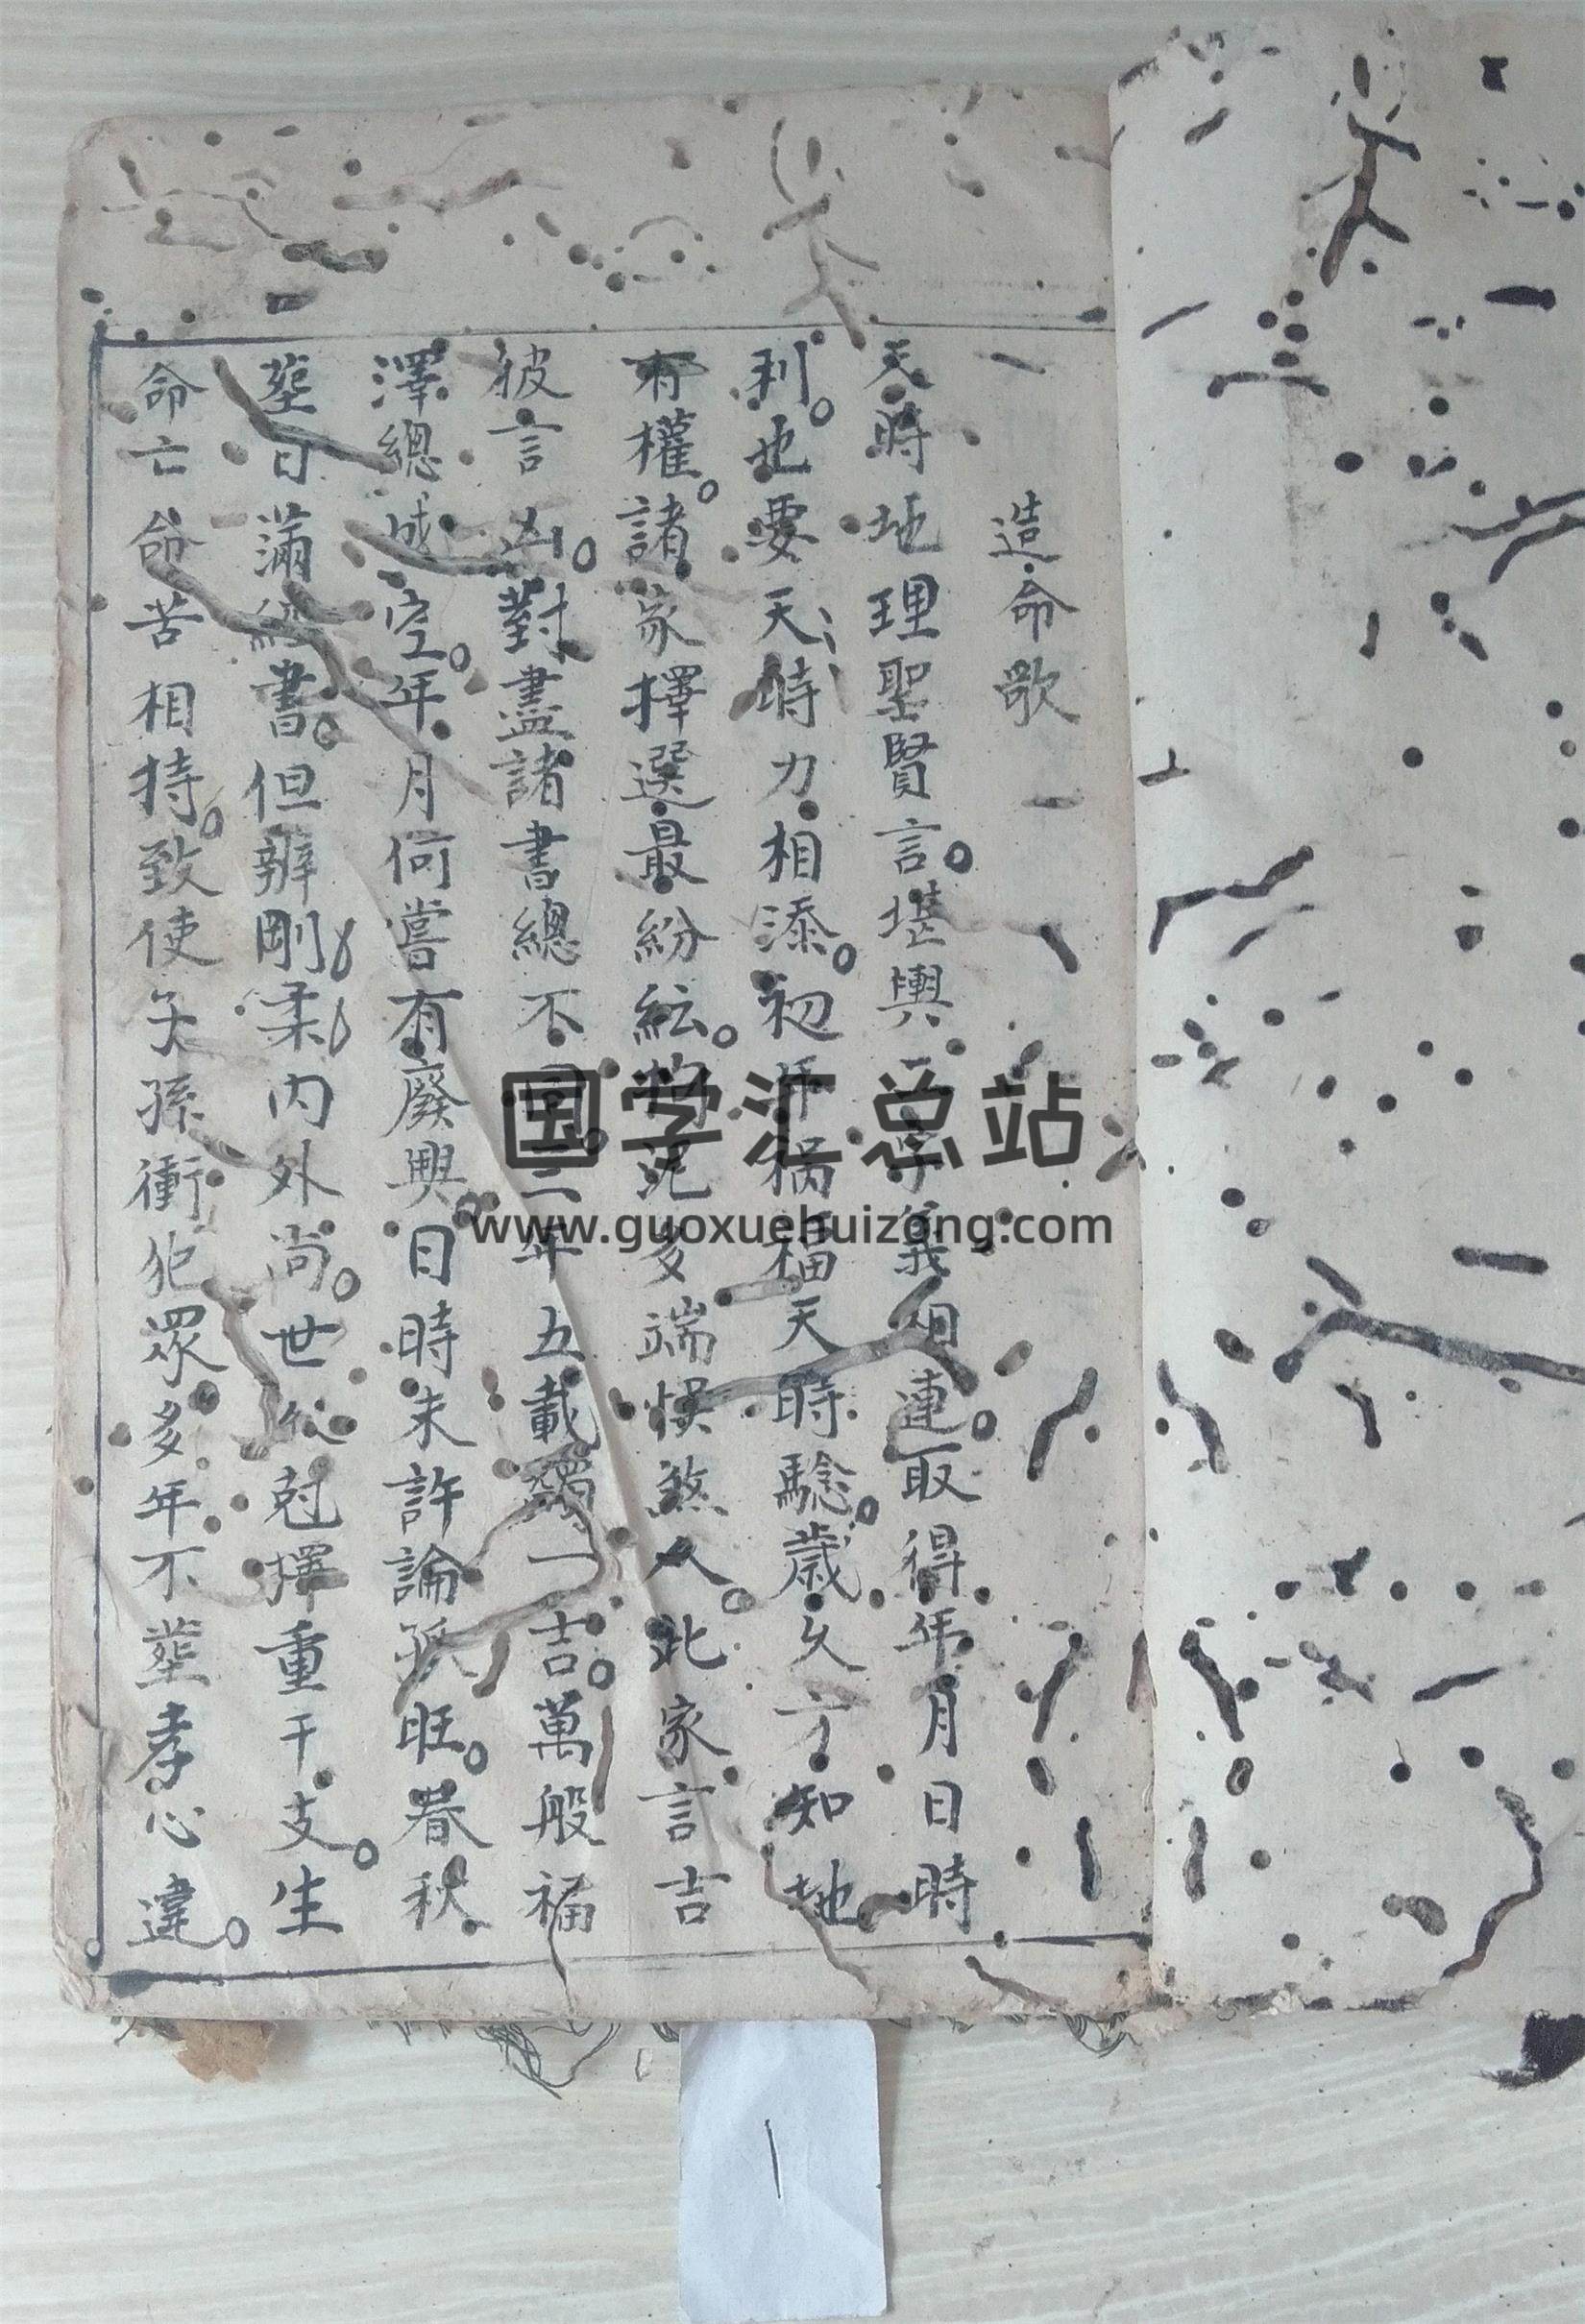 造命歌
天時地理聖賢言。堪輿二字義相連。取得年月日時
利。也要天時力相添。初年禍福天時驗。歲久方知地
有權。諸家擇選最紛紜。拘泥多端悮煞人。此家言吉
彼言凶。對盡諸書總不同。三年五載擇一吉。萬般福
澤總成空。年月何嘗有廢興。日時未許論孤旺。春秋
塟日滿經書。但辨剛柔內外尚。世俗尅擇重干支。生
命亡命苦相持。致使子孫衝犯眾多年不塟孝心違。
国学汇总站
www.guoxuehuizong.com
1